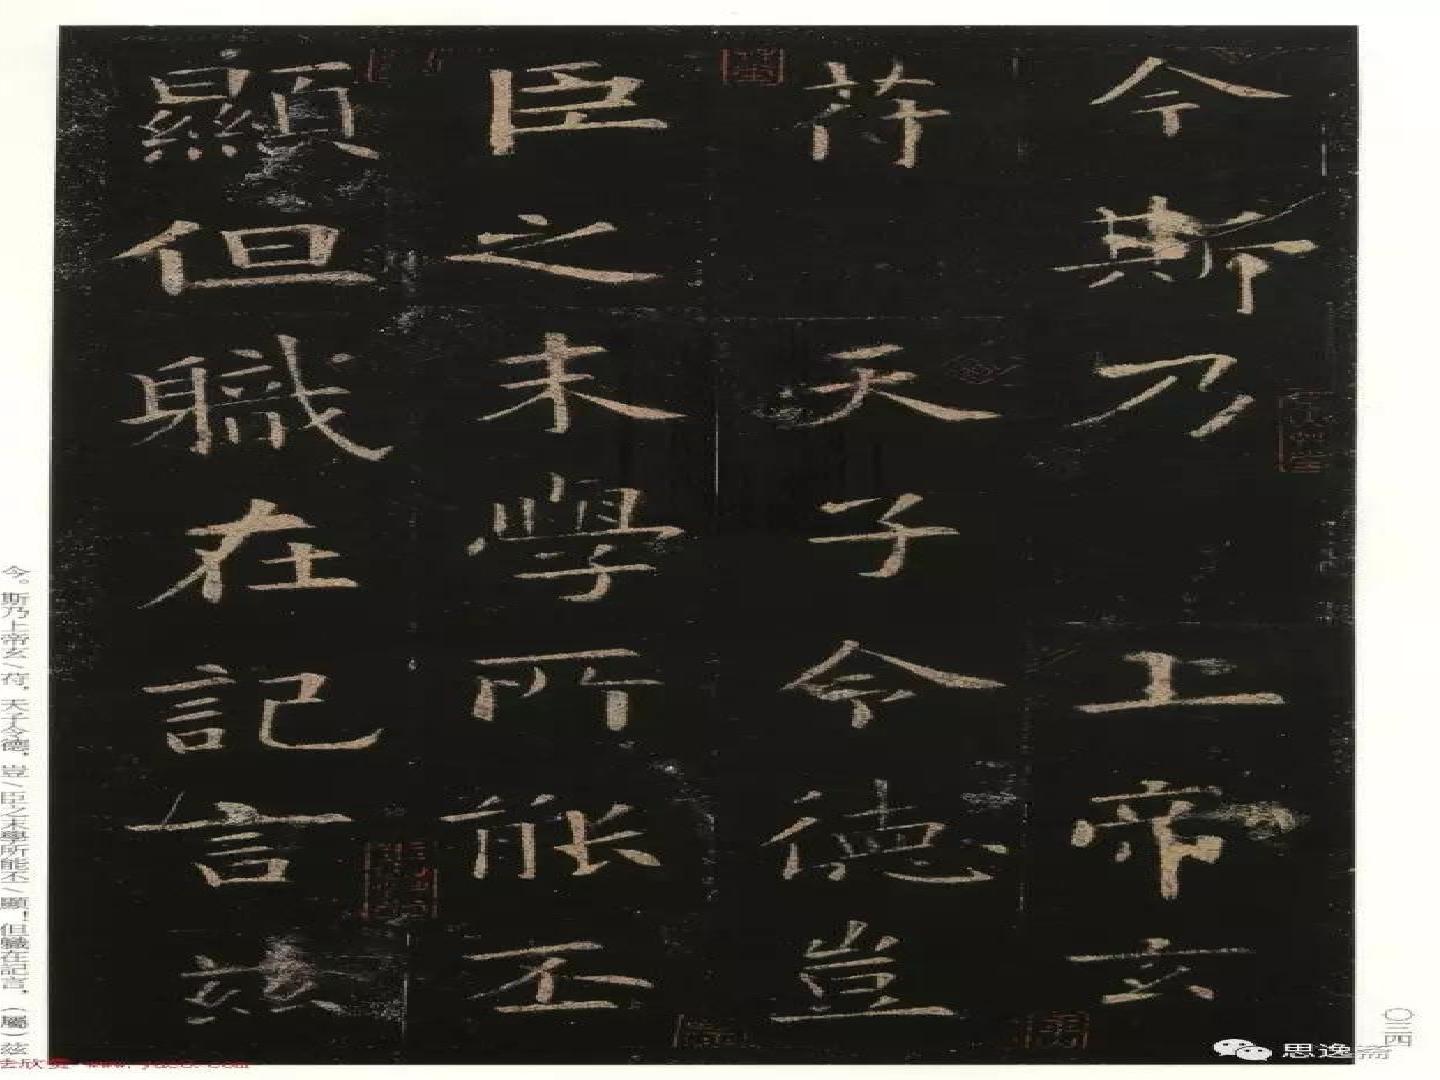 今斯乃上帝玄
符天子令德豈
臣之末學所能丕
顯但職在記言茲
今。斯乃上帝玄/符,天子令德,豈/臣之末學所能丕/顯,但職在記言。(屬)茲
〇三四
思逸斋